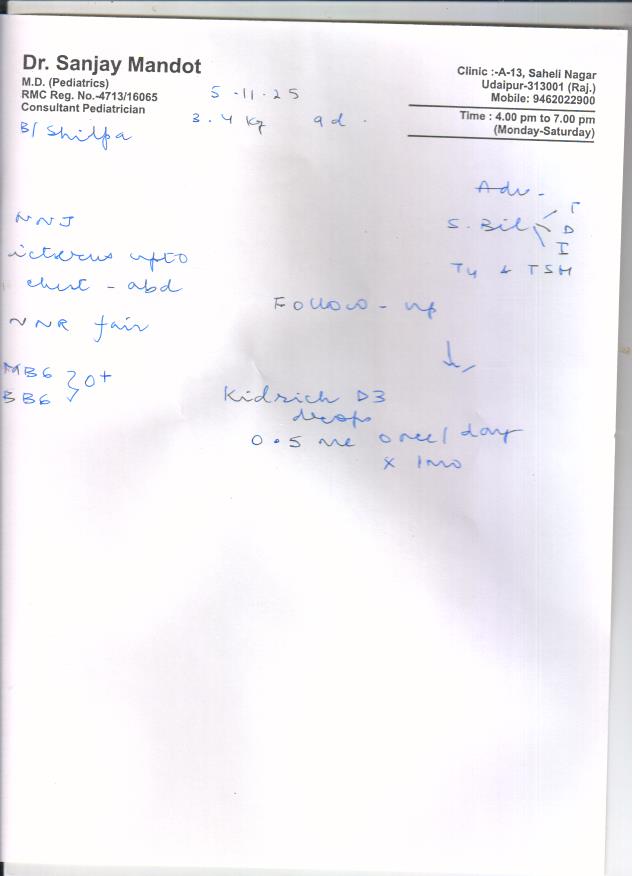 Dr. Sanjay Mandot
M.D. (Pediatrics)
RMC Reg. No.-4713/16065
Consultant Pediatrician
Clinic :-A-13, Saheli Nagar
Udaipur-313001 (Raj.)
Mobile: 9462022900
Time : 4.00 pm to 7.00 pm
(Monday-Saturday)
5.11.25
3.4 kg 9d.
B/ Shilpa
Adv -
S. Bil T
D
I
T4 & TSH
NNJ
icterus upto
chest - abd
NNR fair
MBG } O+
BBG
Follow - up
Kidrich D3
drops
0.5 ml once/day
x 1mo